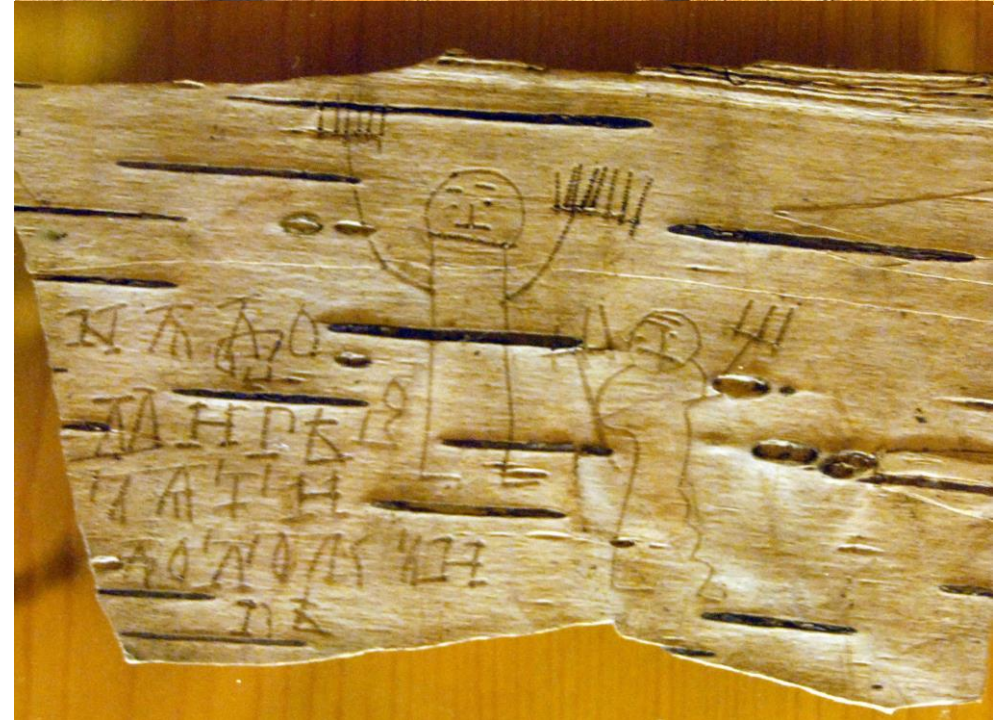 НАДО
МИТРѢВО
ЗѦТИ
ДОЛОЖЗИ
КѢ